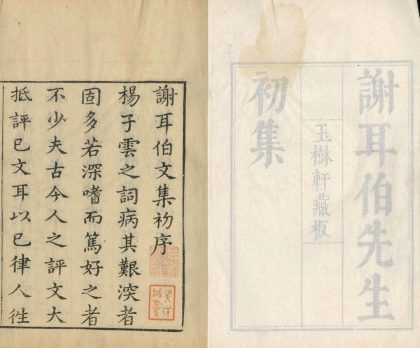 謝耳伯先生
初集
玉樹軒藏板
謝耳伯文集初序
楊子雲之詞病其艱深者
固多若深嗜而篤好之者
不少夫古今人之評文大
抵評已文耳以已律人徃